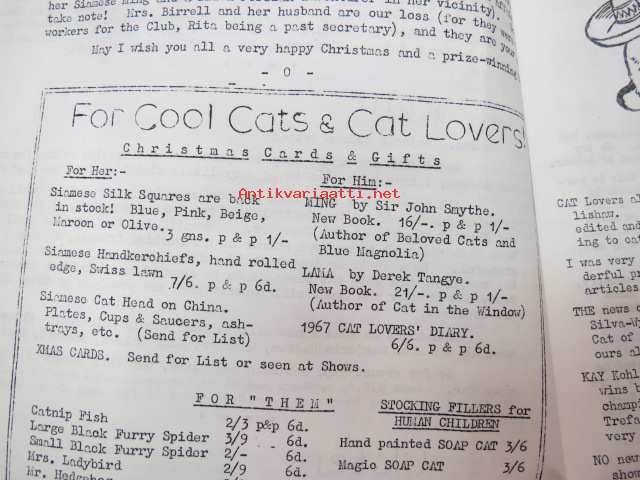 her Siamese Ming and
in her vicinity).
take note! Mrs. Birrell and her husband are our loss (for they were
workers for the Club, Rita being a past secretary), and they are your
May I wish you all a very happy Christmas and a prize-winning
- 0 -
For Cool Cats & Cat Lovers!
Christmas Cards & Gifts
For Her:-
Siamese Silk Squares are back
in stock! Blue, Pink, Beige,
Maroon or Olive.
3 gns. p & p 1/-
Siamese Handkerchiefs, hand rolled
edge, Swiss lawn
7/6. p & p 6d.
Siamese Cat Head on China.
Plates, Cups & Saucers, ash-
trays, etc. (Send for List)
XMAS CARDS. Send for List or seen at Shows.
For Him:-
MING by Sir John Smythe.
New Book. 16/-. p & p 1/-
(Author of Beloved Cats and
Blue Magnolia)
LAMA by Derek Tangye.
New Book. 21/-. p & p 1/-
(Author of Cat in the Window)
1967 CAT LOVERS' DIARY.
6/6. p & p 6d.
FOR "THEM"
Catnip Fish 2/3 p&p 6d.
Large Black Furry Spider 3/9 6d.
Small Black Furry Spider 2/- 6d.
Mrs. Ladybird 2/9 6d.
Mr. Hedgehog
STOCKING FILLERS for
HUMAN CHILDREN
Hand painted SOAP CAT 3/6
Magic SOAP CAT 3/6
Antikvariaatti.net
CAT Lovers al
lishaw.
edited and
ing to cat
I was very
derful pr
articles
THE news o
Silva-Wy
Cat of
ours al
KAY Kohl
wins b
champi
Trefa
very
NO new
show